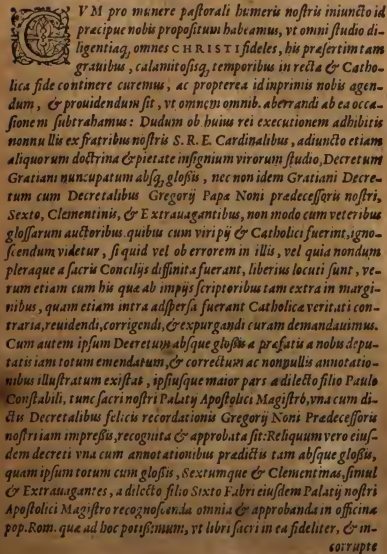 CVM pro munere pastorali humeris nostris iniuncto id
præcipue nobis propositum habeamus, vt omni studio di-
ligentiaq, omnes CHRISTI fideles, his præsertim tam
grauibus, calamitosisq, temporibus in recta & Catho-
lica fide continere curemus, ac propterea id inprimis nobis agen-
dum, & prouidendum sit, vt omnem omnib. aberrandi ab ea occa-
sionem subtrahamus: Dudum ob huius rei executionem adhibitis
nonnullis ex fratribus nostris S. R. E. Cardinalibus, adiuncto etiam
aliquorum doctrina & pietate insignium virorum studio, Decretum
Gratiani nuncupatum absq, glossis, nec non idem Gratiani Decre-
tum cum Decretalibus Gregorij Papæ Noni prædecessoris nostri,
Sexto, Clementinis, & Extrauagantibus, non modo cum veteribus
glossarum auctoribus. quibus cum viri pij & Catholici fuerint, igno-
scendum videtur, si quid vel ob errorem in illis, vel quia nondum
pleraque a sacris Concilijs diffinita fuerant, liberius locuti sunt, ve-
rum etiam cum his quæ ab impijs scriptoribus tam extra in margi-
nibus, quam etiam intra adspersa fuerant Catholicæ veritati con-
traria, reuidendi, corrigendi, & expurgandi curam demandauimus.
Cum autem ipsum Decretum absque glossis a præfatis a nobis depu-
tatis iam totum emendatum, & correctum ac nonnullis annotatio-
nibus illustratum existat, ipsiusque maior pars a dilecto filio Paulo
Constabili, tunc sacri nostri Palatij Apostolici Magistro, vna cum di-
ctis Decretalibus felicis recordationis Gregorij Noni Prædecessoris
nostri iam impressis, recognita & approbata sit: Reliquum vero eius-
dem decreti vna cum annotationibus prædictis tam absque glossis,
quam ipsum totum cum glossis, Sextumque & Clementinas, simul
& Extrauagantes, a dilecto filio Sixto Fabri eiusdem Palatij nostri
Apostolici Magistro recognoscenda omnia & approbanda in officina
pop. Rom. quæ ad hoc potissimum, vt libri sacri in ea fideliter, & in-
corrupte